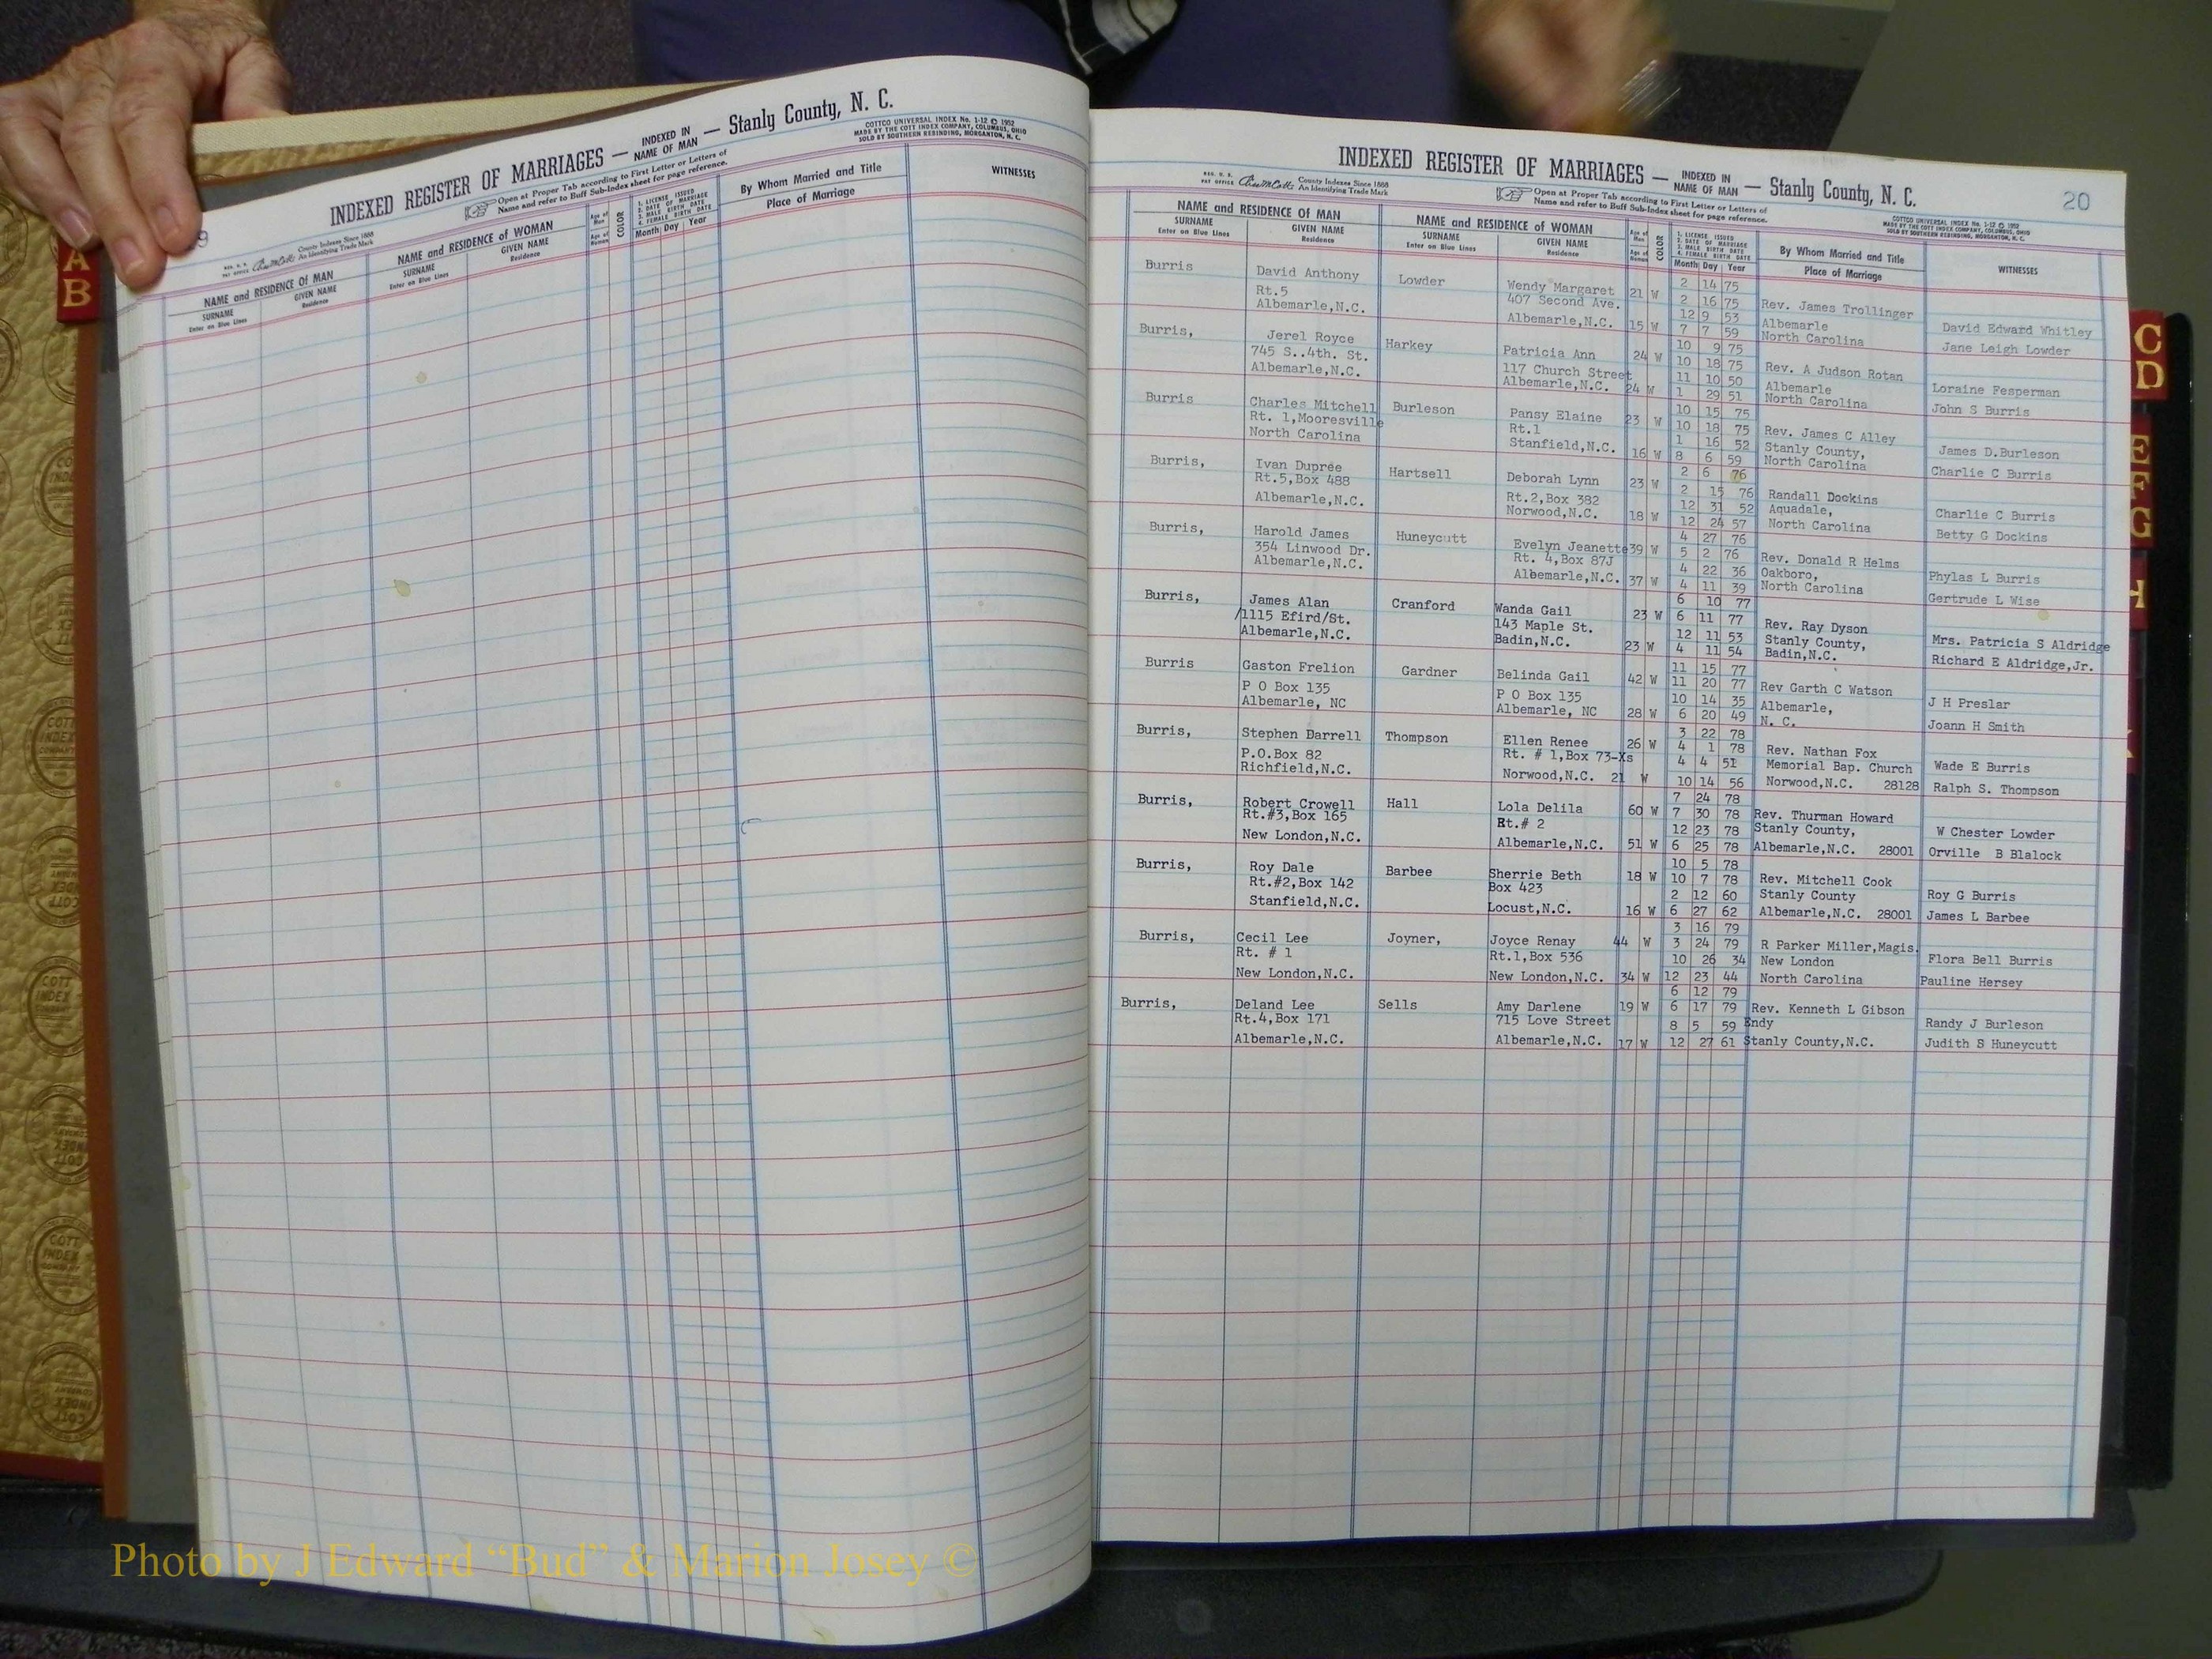 INDEXED REGISTER OF MARRIAGES — INDEXED IN NAME OF MAN — Stanly County, N. C.
COTTCO UNIVERSAL INDEX No. 1-12 © 1952
MADE BY THE COTT INDEX COMPANY, COLUMBUS, OHIO
SOLD BY SOUTHERN REBINDING, MORGANTON, N. C.
Open at Proper Tab according to First Letter or Letters of
Name and refer to Buff Sub-Index sheet for page reference.
County Indexes Since 1888
An Identifying Trade Mark
9
NAME and RESIDENCE OF MAN
SURNAME
Enter on Blue Lines
GIVEN NAME
Residence
NAME and RESIDENCE of WOMAN
SURNAME
Enter on Blue Lines
GIVEN NAME
Residence
Age of Man
Age of Woman
COLOR
1. LICENSE ISSUED
2. DATE OF MARRIAGE
3. MALE BIRTH DATE
4. FEMALE BIRTH DATE
Month Day Year
By Whom Married and Title
Place of Marriage
WITNESSES
INDEXED REGISTER OF MARRIAGES — INDEXED IN NAME OF MAN — Stanly County, N. C.
20
REG. U. S. PAT OFFICE
County Indexes Since 1888
An Identifying Trade Mark
Open at Proper Tab according to First Letter or Letters of
Name and refer to Buff Sub-Index sheet for page reference.
COTTCO UNIVERSAL INDEX No. 1-12 © 1952
MADE BY THE COTT INDEX COMPANY, COLUMBUS, OHIO
SOLD BY SOUTHERN REBINDING, MORGANTON, N. C.
NAME and RESIDENCE OF MAN
SURNAME
Enter on Blue Lines
GIVEN NAME
Residence
NAME and RESIDENCE of WOMAN
SURNAME
Enter on Blue Lines
GIVEN NAME
Residence
Age of Man
Age of Woman
COLOR
1. LICENSE ISSUED
2. DATE OF MARRIAGE
3. MALE BIRTH DATE
4. FEMALE BIRTH DATE
Month Day Year
By Whom Married and Title
Place of Marriage
WITNESSES
Burris David Anthony Lowder Wendy Margaret 21 W 2 14 75
Rt.5 407 Second Ave. 2 16 75 Rev. James Trollinger
Albemarle,N.C. 12 9 53 Albemarle David Edward Whitley
Albemarle,N.C. 15 W 7 7 59 North Carolina Jane Leigh Lowder
Burris, Jerel Royce Harkey Patricia Ann 24 W 10 9 75
745 S..4th. St. 117 Church Street 10 18 75 Rev. A Judson Rotan
Albemarle,N.C. Albemarle,N.C. 11 10 50 Albemarle Loraine Fesperman
24 W 1 29 51 North Carolina John S Burris
Burris Charles Mitchell Burleson Pansy Elaine 23 W 10 15 75
Rt. 1,Mooresville Rt.1 10 18 75 Rev. James C Alley
North Carolina Stanfield,N.C. 1 16 52 Stanly County, James D.Burleson
16 W 8 6 59 North Carolina Charlie C Burris
Burris, Ivan Dupree Hartsell Deborah Lynn 23 W 2 6 76
Rt.5,Box 488 Rt.2,Box 382 2 15 76 Randall Dockins
Albemarle,N.C. Norwood,N.C. 12 31 52 Aquadale, Charlie C Burris
18 W 12 24 57 North Carolina Betty G Dockins
Burris, Harold James Huneycutt Evelyn Jeanette 39 W 4 27 76
354 Linwood Dr. Rt. 4,Box 87J 5 2 76 Rev. Donald R Helms
Albemarle,N.C. Albemarle,N.C. 4 22 36 Oakboro, Phylas L Burris
37 W 4 11 39 North Carolina Gertrude L Wise
Burris, James Alan Cranford Wanda Gail 23 W 6 10 77
/1115 Efird/St. 143 Maple St. 6 11 77 Rev. Ray Dyson
Albemarle,N.C. Badin,N.C. 12 11 53 Stanly County, Mrs. Patricia S Aldridge
23 W 4 11 54 Badin,N.C. Richard E Aldridge,Jr.
Burris Gaston Frelion Gardner Belinda Gail 42 W 11 15 77
P O Box 135 P O Box 135 11 20 77 Rev Garth C Watson
Albemarle, NC Albemarle, NC 10 14 35 Albemarle, J H Preslar
28 W 6 20 49 N. C. Joann H Smith
Burris, Stephen Darrell Thompson Ellen Renee 26 W 3 22 78
P.O.Box 82 Rt. # 1,Box 73-Xs 4 1 78 Rev. Nathan Fox
Richfield,N.C. 4 4 51 Memorial Bap. Church Wade E Burris
Norwood,N.C. 21 W 10 14 56 Norwood,N.C. 28128 Ralph S. Thompson
Burris, Robert Crowell Hall Lola Delila 60 W 7 24 78
Rt.#3,Box 165 Rt.# 2 7 30 78 Rev. Thurman Howard
New London,N.C. 12 23 78 Stanly County, W Chester Lowder
Albemarle,N.C. 51 W 6 25 78 Albemarle,N.C. 28001 Orville B Blalock
Burris, Roy Dale Barbee Sherrie Beth 18 W 10 5 78
Rt.#2,Box 142 Box 423 10 7 78 Rev. Mitchell Cook
Stanfield,N.C. 2 12 60 Stanly County Roy G Burris
Locust,N.C. 16 W 6 27 62 Albemarle,N.C. 28001 James L Barbee
Burris, Cecil Lee Joyner, Joyce Renay 44 W 3 16 79
Rt. # 1 Rt.1,Box 536 3 24 79 R Parker Miller,Magis.
10 26 34 New London Flora Bell Burris
New London,N.C. New London,N.C. 34 W 12 23 44 North Carolina Pauline Hersey
Burris, Deland Lee Sells Amy Darlene 19 W 6 12 79
Rt.4,Box 171 715 Love Street 6 17 79 Rev. Kenneth L Gibson
8 5 59 Endy Randy J Burleson
Albemarle,N.C. Albemarle,N.C. 17 W 12 27 61 Stanly County,N.C. Judith S Huneycutt
A
B
C
D
E
F
G
H
K
COTT
INDEX
COMPANY
Photo by J Edward “Bud” & Marion Josey ©